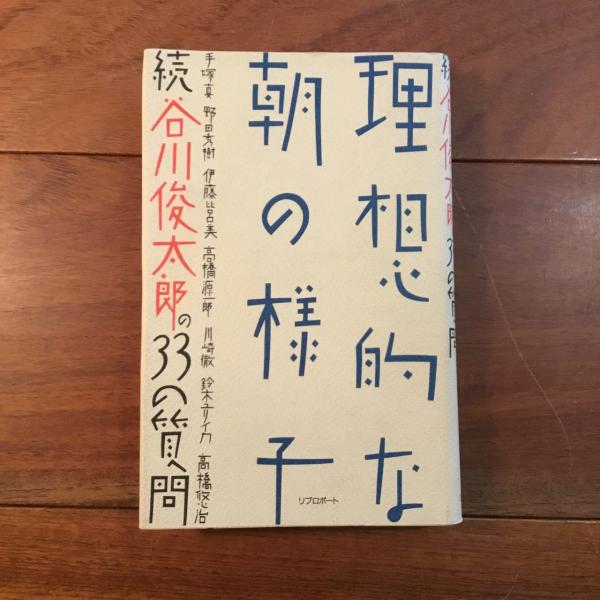 続 谷川俊太郎 33の質問
理想的な
朝の様子
手塚眞 野田秀樹 伊藤比呂美 高橋源一郎 川崎徹 鈴木ユリイカ 高橋悠治
続 谷川俊太郎の33の質問
リブロポート